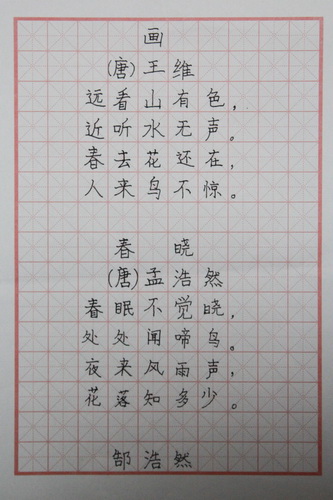 画
(唐)王维
远看山有色，
近听水无声。
春去花还在，
人来鸟不惊。
春晓
(唐)孟浩然
春眠不觉晓，
处处闻啼鸟。
夜来风雨声，
花落知多少。
郜浩然